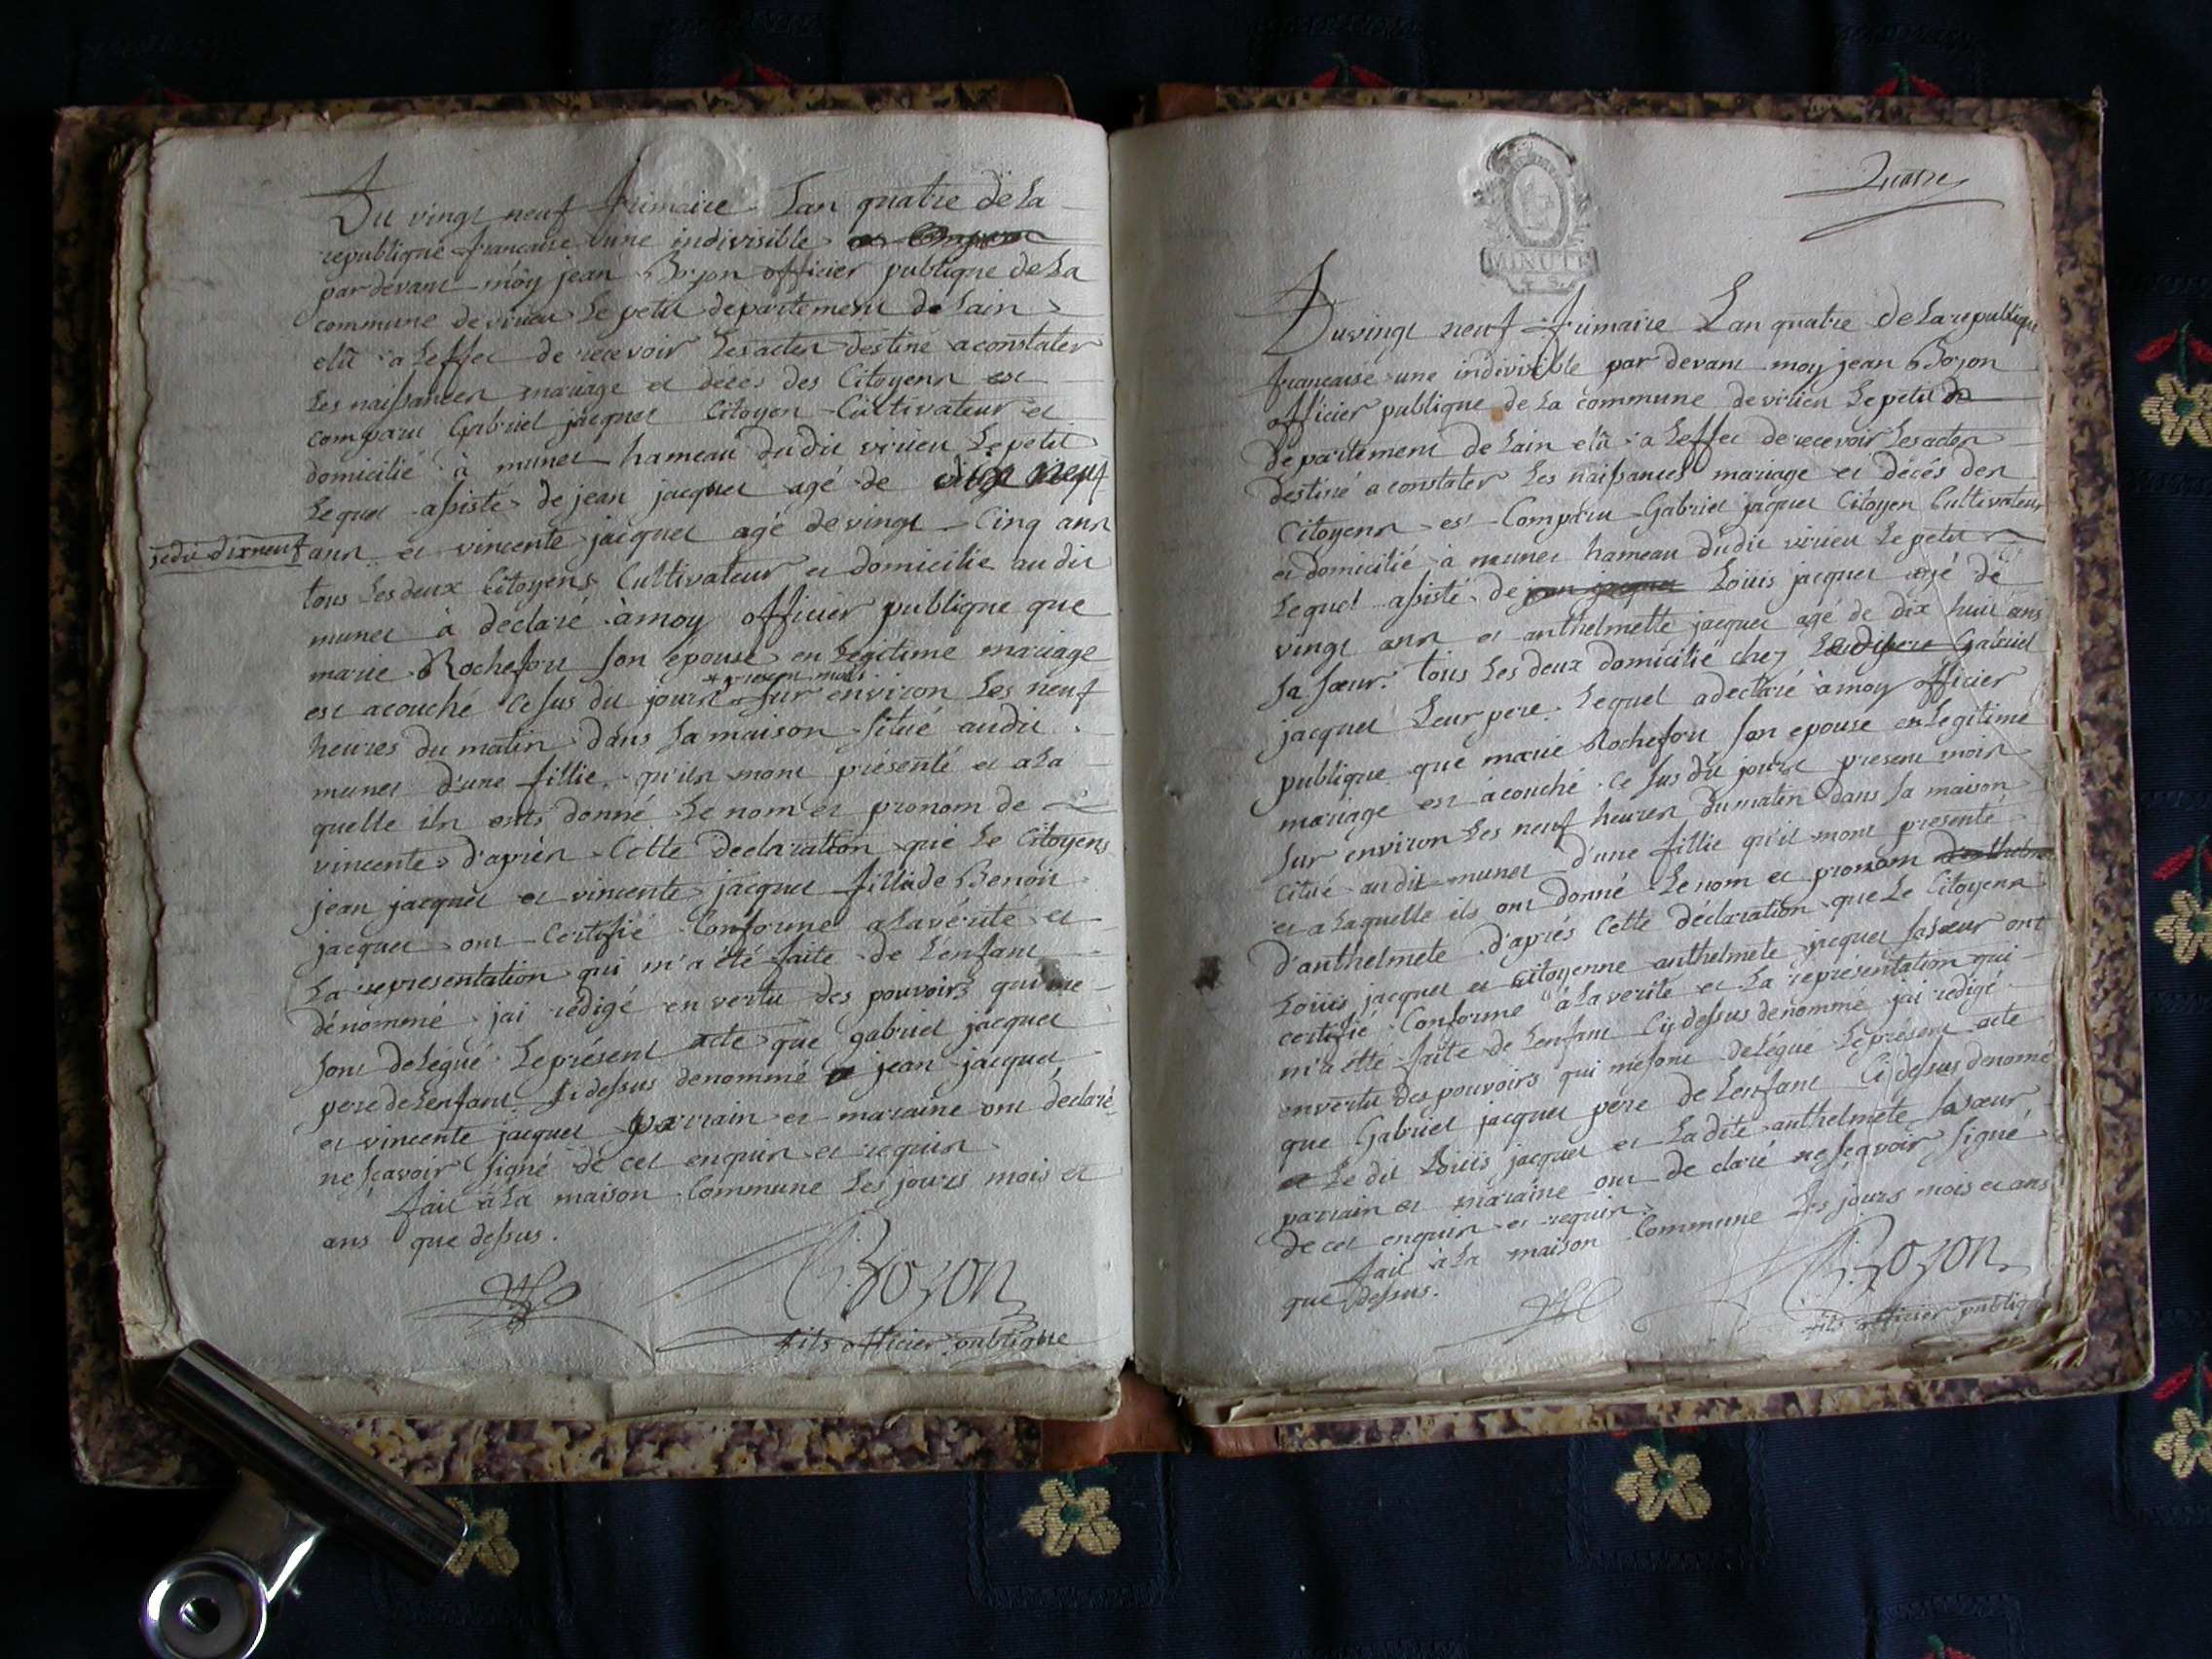 Du vingt neuf frimaire Lan quatre de La
republique francaise une indivisible
par devant moÿ jean Bozon officier publique de La
commune de virieu Le petit departement de Lain
elû a Leffet de recevoir Les actes destiné a constater
Les naissances mariage et décés des Citoyens est
comparu Gabriel jacquet Citoyen Cultivateur et
domicilié à munet hameau du dit virieu Le petit
Lequel assisté de jean jacquet agé de dix neuf
je dit dix neuf
ans et vincente jacquet agé de vingt Cinq ans
tous Les deux Citoyens Cultivateur et domicilie au dit
munet à declaré à moy officier publique que
marie Rochefort son epouse en Legitime mariage
present mois
est acouché Ce sus dit jours sur environ Les neuf
heures du matin dans sa maison situé au dit
munet d'une fillie qu'ils mont présenté et a La
quelle ils onts donné Le nom et pronom de
vincente d'aprés Cette declaration que Le Citoyens
jean jacquet et vincente jacquet fillie de Benoit
jacquet ont Certifié Conforme a La vérité et
La representation qui m'a été faite de L'enfant
dénommé jai rédigé en vertu des pouvoirs qui me
sont delégué Le présent acte que gabriel jacquet
pere de Lenfant Ci dessus denommé jean jacquet
et vincente jacquet parrain et maraine ont declaré
ne sçavoir signé de cet enquis et requis
fait à La maison Commune Les jours mois et
ans que dessus.
Bozon
fils officier publique
quatre
MINUTE
Du vingt neuf frimaire Lan quatre de La republique
francaise une indivisible par devant moy jean Bozon
officier publique de La commune de virieu Le petit
departement de Lain elû a Leffet de recevoir Les actes
destiné a constater Les naissances mariage et décés des
Citoyens est Comparu Gabriel jacquet Citoyen Cultivateur
et domicilié à munet hameau du dit virieu Le petit
Lequel assisté de jean jacquet Loüis jacquet agé de
vingt ans et anthelmette jacquet agé de dix huit ans
sa sœur. tous Les deux domicilié chez Gabriel
jacquet Leur pere Lequel a declaré à moy officier
publique que marie Rochefort son epouse en Legitime
mariage est acouché Ce sus dit jours present mois
sur environ Les neuf heures du matin dans sa maison
citué au dit munet d'une fillie qu'il mont presenté
et a Laquelle ils ont donné Le nom et pronom
d'anthelmete d'aprés Cette déclaration que Le Citoyens
Loüis jacquet et Citoyenne anthelmete jacquet sa sœur ont
certifié Conforme à La verite et La représentation qui
m'a étté faite de Lenfant Cy dessus denommé jai rédigé
en vertu des pouvoirs qui me sont delégué Le présent acte
que Gabriel jacquet pere de Lenfant Cy dessus denomé
et Le dit Loüis jacquet et La dite anthelmete sa sœur
parrain et maraine ont de claré ne sçavoir signé
de cet enquis et requis
fait à La maison Commune Les jours mois et ans
que dessus.
Bozon
fils officier publique